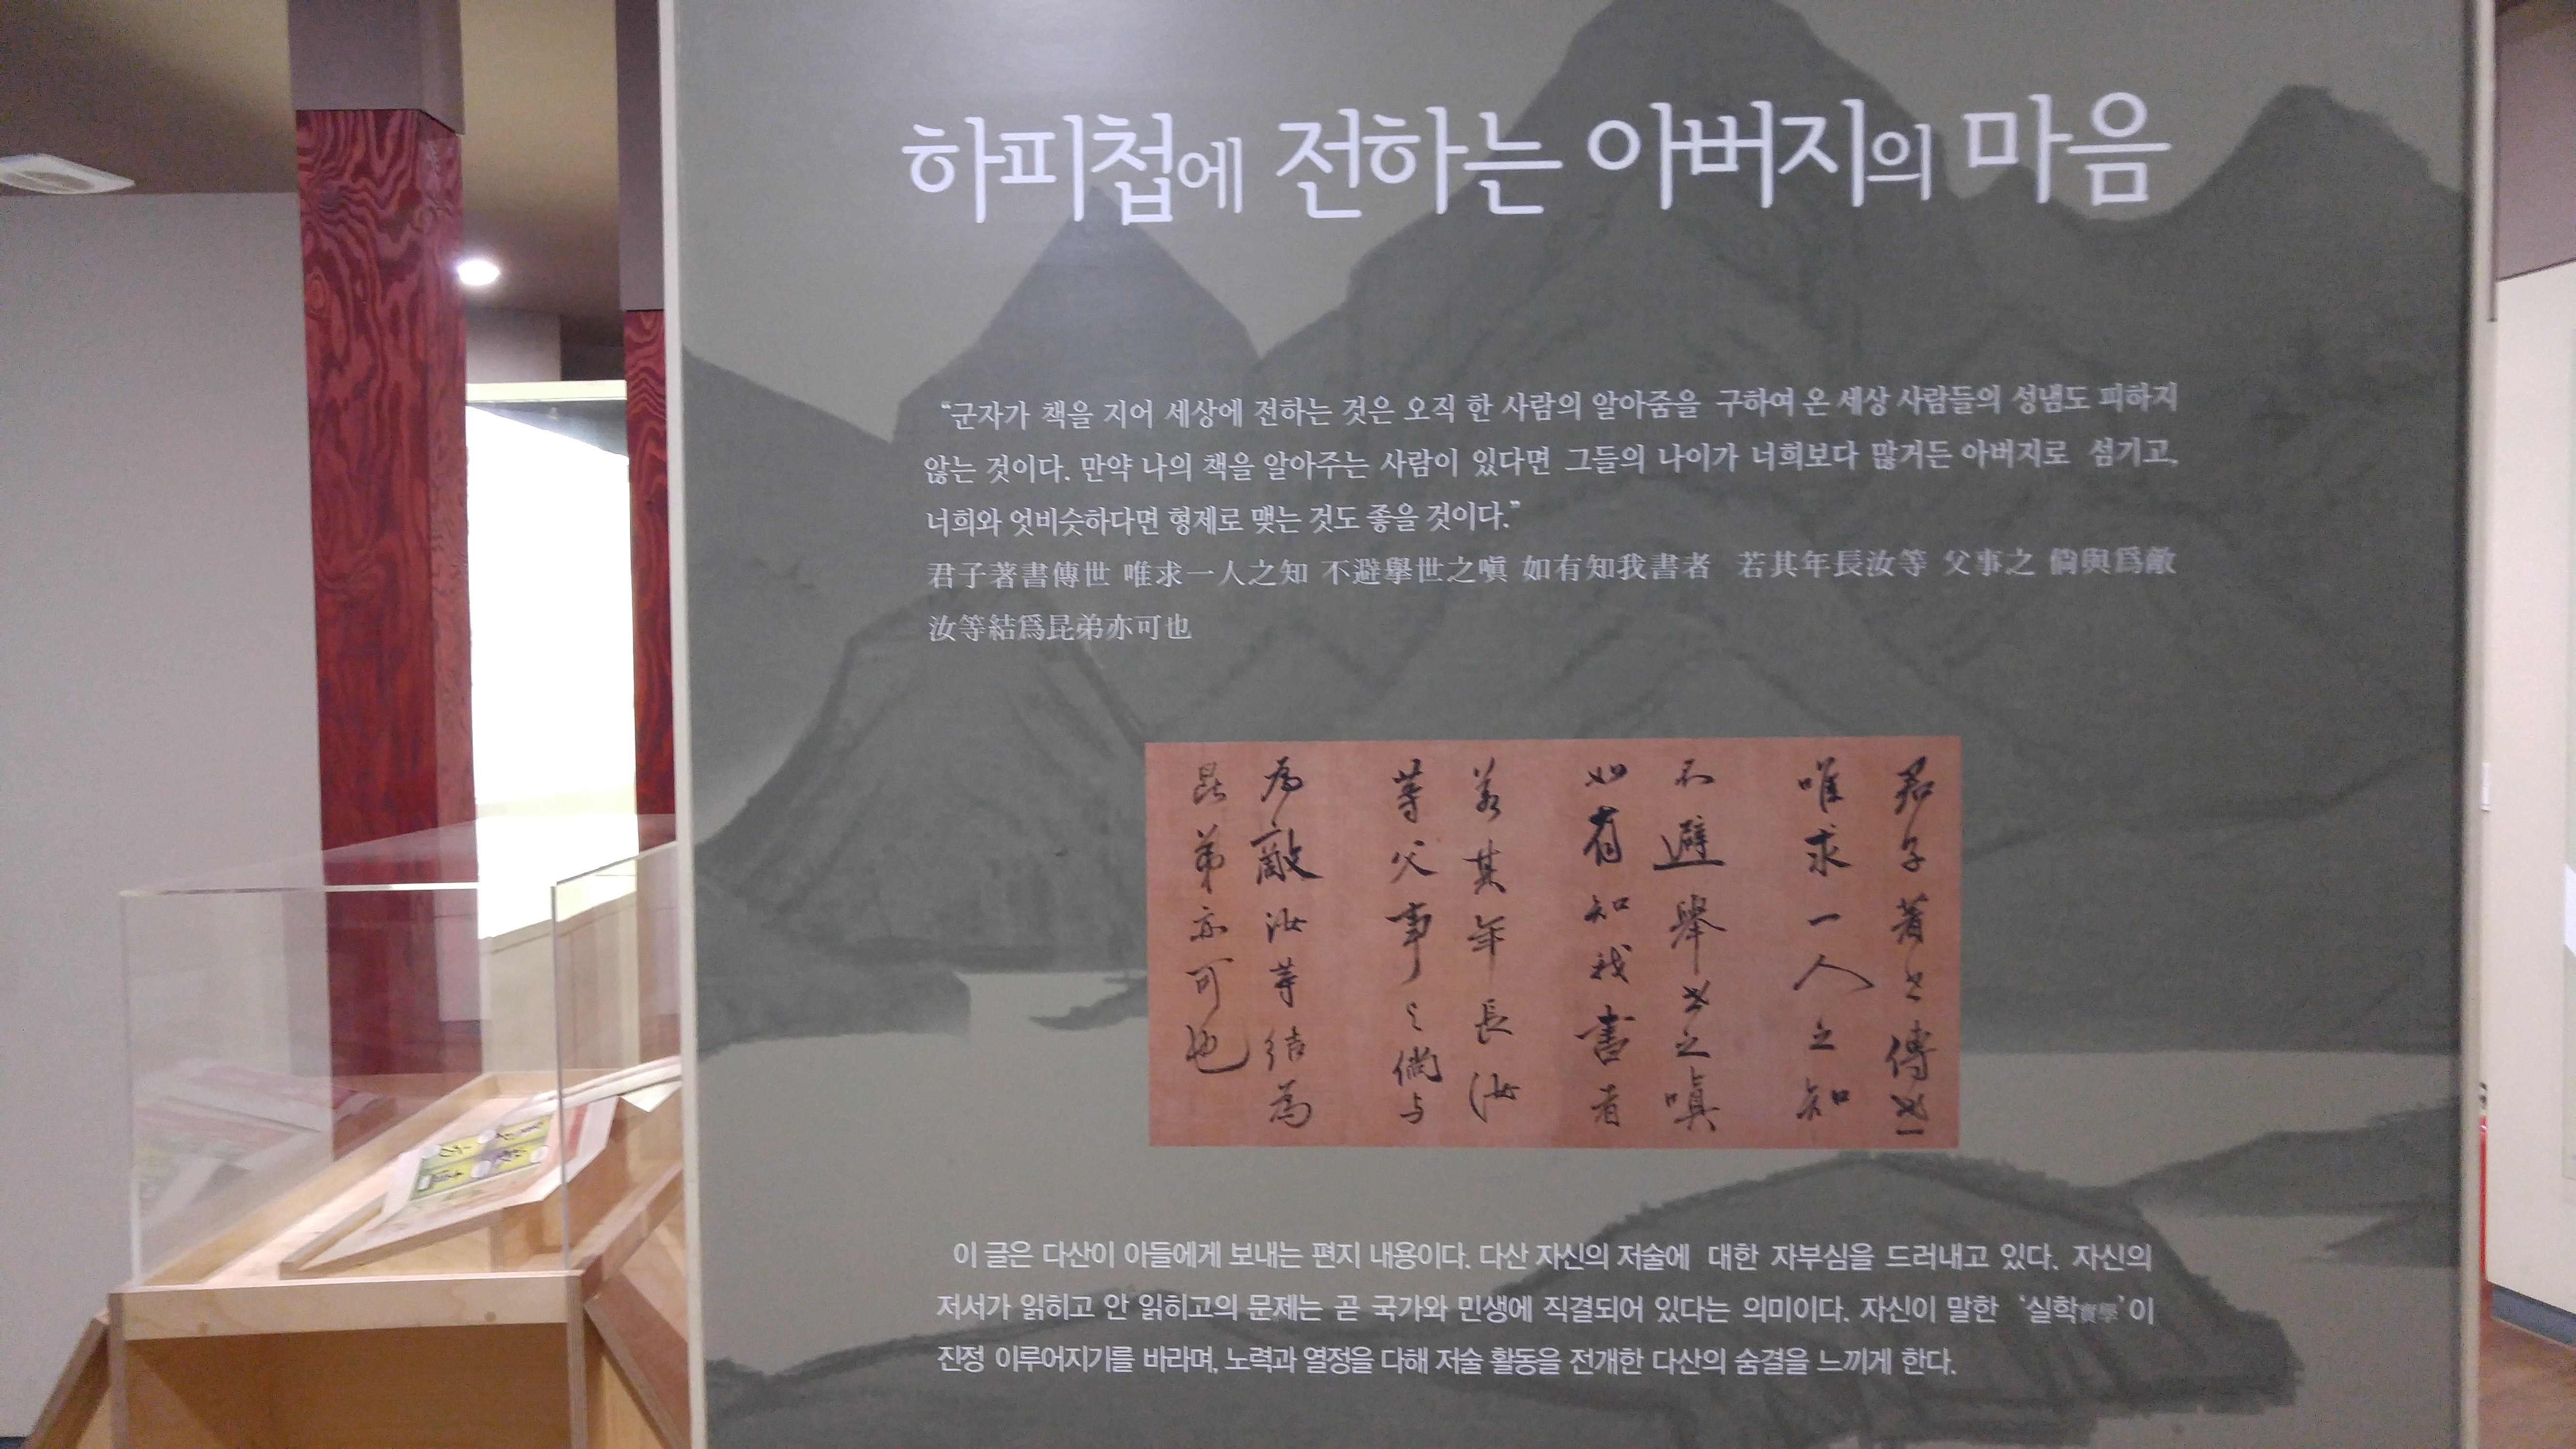 하피첩에 전하는 아버지의 마음
“군자가 책을 지어 세상에 전하는 것은 오직 한 사람의 알아줌을 구하여 온 세상 사람들의 성냄도 피하지
않는 것이다. 만약 나의 책을 알아주는 사람이 있다면 그들의 나이가 너희보다 많거든 아버지로 섬기고,
너희와 엇비슷하다면 형제로 맺는 것도 좋을 것이다.”
君子著書傳世 唯求一人之知 不避擧世之嗔 如有知我書者 若其年長汝等 父事之 倘與爲敵
汝等結爲昆弟亦可也
君子著書傳世
唯求一人之知
不避擧世之嗔
如有知我書者
若其年長汝
等父事之倘与
為敵汝等結為
昆弟亦可也
이 글은 다산이 아들에게 보내는 편지 내용이다. 다산 자신의 저술에 대한 자부심을 드러내고 있다. 자신의
저서가 읽히고 안 읽히고의 문제는 곧 국가와 민생에 직결되어 있다는 의미이다. 자신이 말한 ‘실학實學’이
진정 이루어지기를 바라며, 노력과 열정을 다해 저술 활동을 전개한 다산의 숨결을 느끼게 한다.